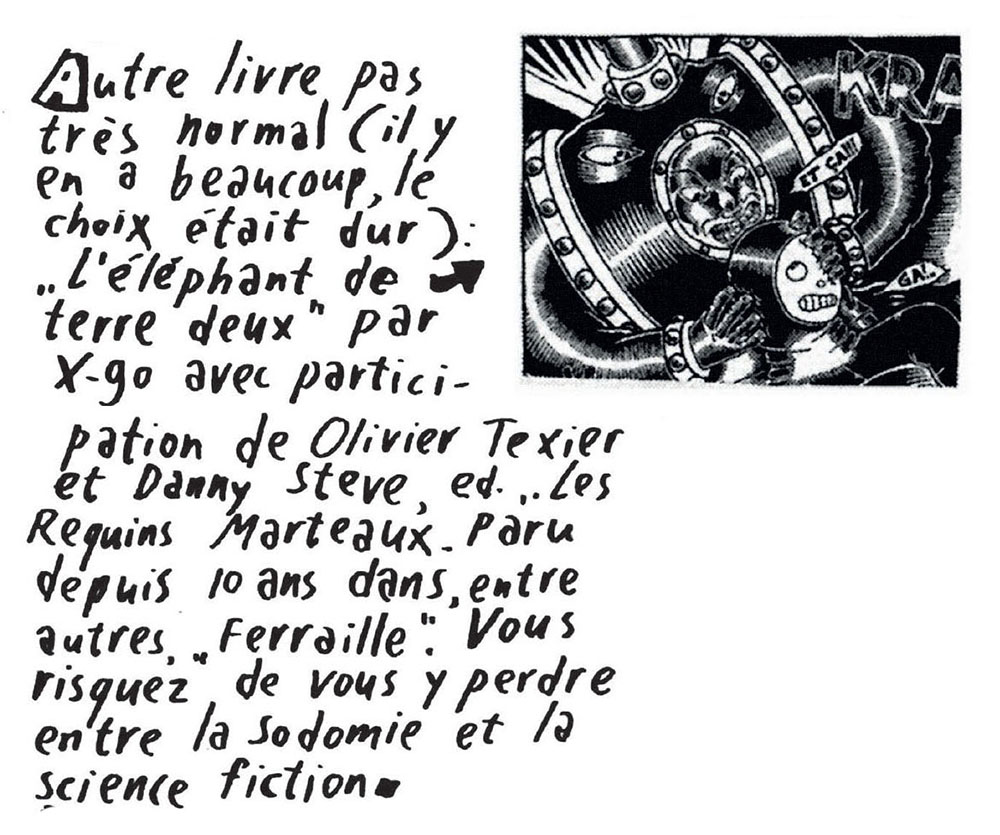 Autre livre pas
très normal (il y
en a beaucoup, le
choix était dur):
„L'éléphant de
terre deux" par
X-go avec partici-
pation de Olivier Texier
et Danny Steve, ed. „Les
Requins Marteaux. Paru
depuis 10 ans dans, entre
autres, „Ferraille". Vous
risquez de vous y perdre
entre la sodomie et la
science fiction.
KRA
ET ÇA!!!
GA!..